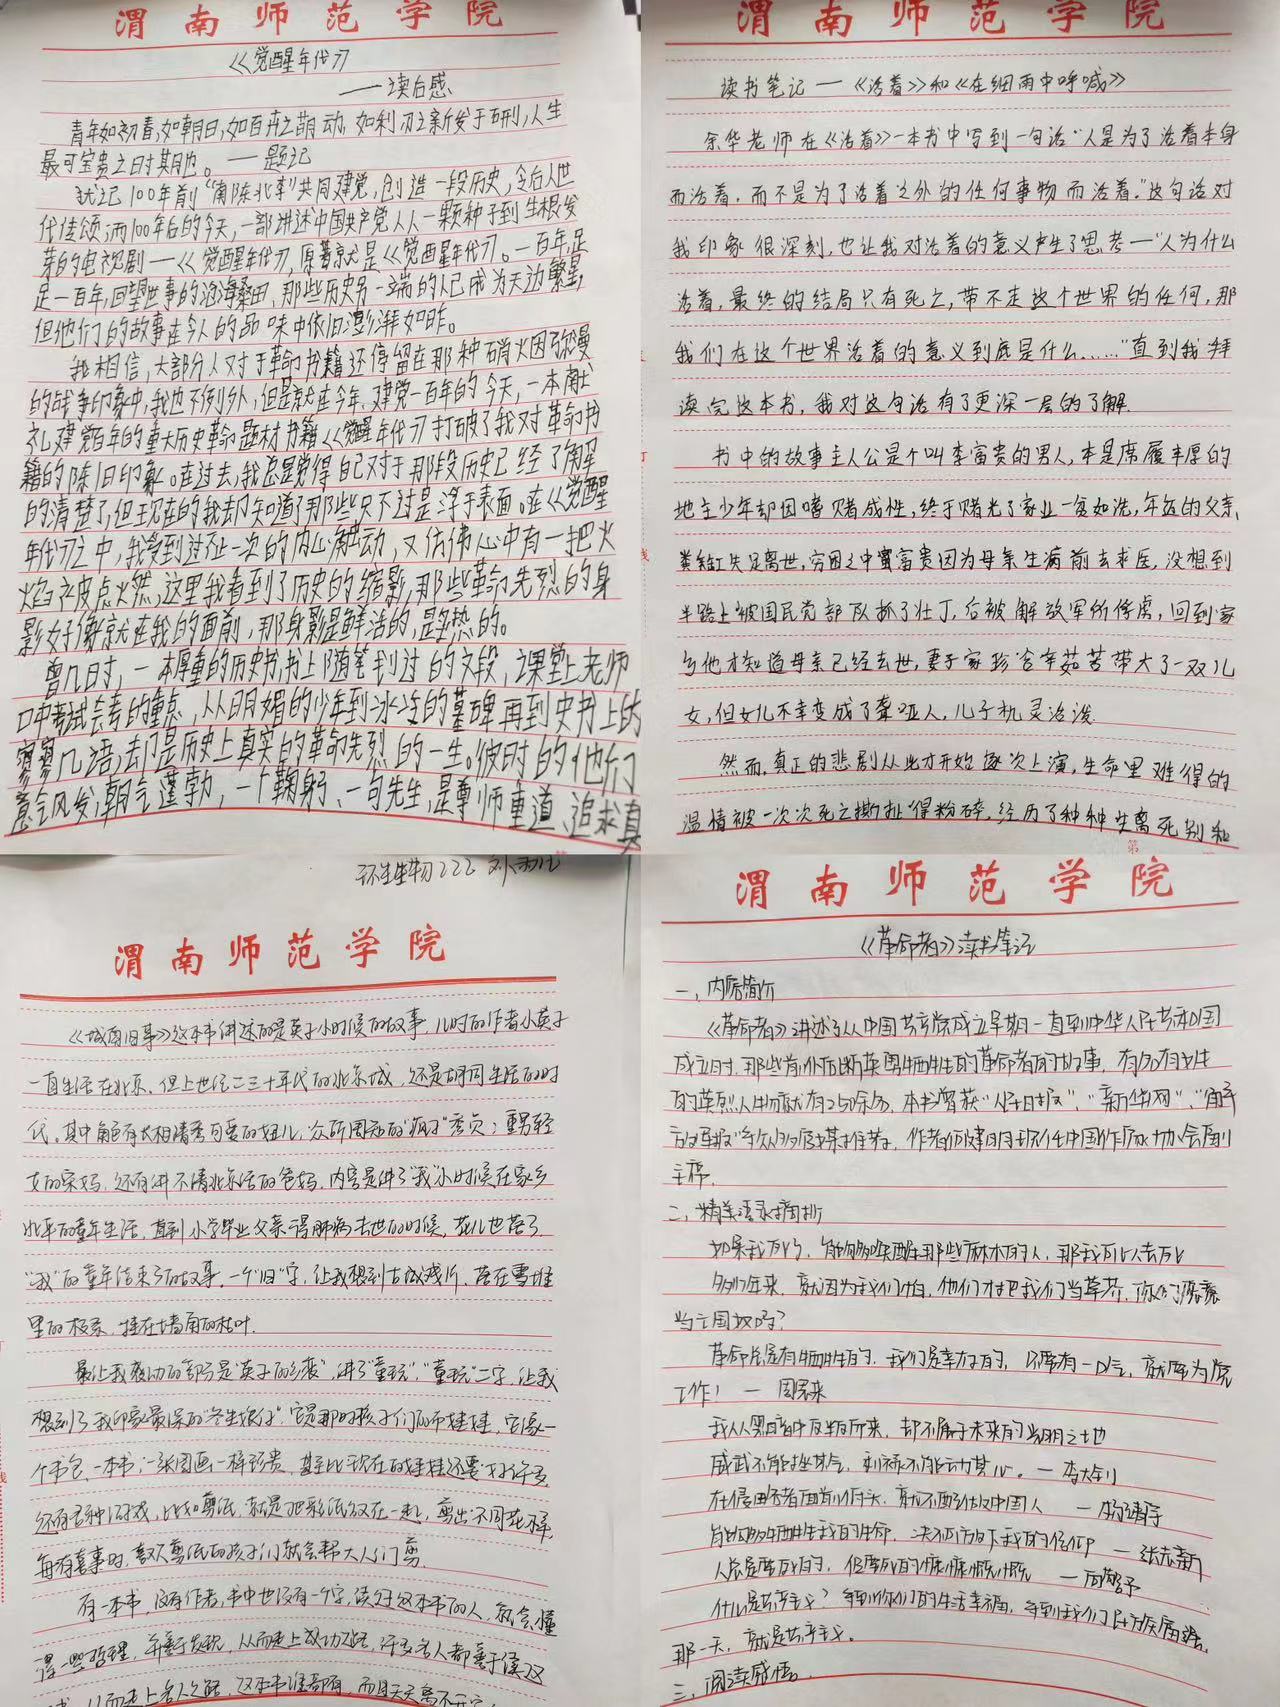 渭南师范学院
《觉醒年代》
——读后感
青年如初春,如朝日,如百卉之萌动,如利刃之新发于硎,人生
最可宝贵之时期也。——题记
犹记100年前“南陈北李”共同建党,创造一段历史,令后人世
代传颂,而100年后的今天,一部讲述中国共产党从一颗种子到生根发
芽的电视剧——《觉醒年代》,原著亦是《觉醒年代》。一百年,足
足一百年,回望世事的沧海桑田,那些历史另一端的人已成为天边繁星,
但他们的故事在今人的品味中依旧澎湃如昨。
我相信,大部分人对于革命书籍还停留在那种硝火因弥漫
的战争印象中,我也不例外,但是就在今年、建党一百年的今天,一本献
礼建党百年的重大历史革命题材书籍《觉醒年代》打破了我对革命书
籍的陈旧印象。在过去,我总是觉得自己对于那段历史已经了解
的清楚了,但现在的我却知道了那些只不过是浮于表面。在《觉醒
年代》之中,我受到过不止一次的内心触动,又仿佛心中有一把火
焰被点燃,这里我看到了历史的缩影,那些革命先烈的身
影好像就在我的面前,那身影是鲜活的,是热的。
曾几时,一本厚重的历史书,书上随笔划过的文段,课堂上老师
口中考试会考的重点,从明媚的少年到冰冷的墓碑再到史书上的
寥寥几语,却是历史上真实的革命先烈的一生。彼时的他们
意气风发,朝气蓬勃,一个鞠躬、一句先生,是尊师重道、追求真
渭南师范学院
读书笔记——《活着》和《在细雨中呼喊》
余华老师在《活着》一本书中写到一句话“人是为了活着本身
而活着,而不是为了活着之外的任何事物而活着。”这句话对
我印象很深刻,也让我对活着的意义产生了思考——“人为什么
活着,最终的结局只有死亡,带不走这个世界的任何,那
我们在这个世界活着的意义到底是什么……”直到我拜
读完这本书,我对这句话有了更深一层的了解.
书中的故事主人公是个叫李富贵的男人,本是席履丰厚的
地主少年却因嗜赌成性,终于赌光了家业一贫如洗,年迈的父亲
粪缸失足离世,穷困之中富贵因为母亲生病前去求医,没想到
半路上被国民党部队抓了壮丁,后被解放军所俘虏,回到家
乡他才知道母亲已经去世,妻子家珍含辛茹苦带大了一双儿
女,但女儿不幸变成了聋哑人,儿子机灵活泼.
然而,真正的悲剧从此才开始逐次上演,生命里难得的
温情被一次次死亡撕扯得粉碎,经历了种种生离死别和
第
环生生物222 刘
渭南师范学院
《城南旧事》这本书讲述的是英子小时候的故事,儿时的作者小英子
一直生活在北京,但上世纪二三十年代的北京城,还是胡同生活的时
代。其中角色有大相清秀可爱的妞儿,众所周知的“疯子”秀贞;重男轻
女的宋妈,还有讲不清北京话的爸妈,内容是讲了“我”小时候在家乡
北平的童年生活,直到小学毕业父亲得肺病去世的时候,花儿也落了
“我”的童年结束了的故事,一个“旧”字,让我想到古城残片,落在雪堆
里的标系,挂在墙角的枯叶.
最让我感动的部分是“英子的乡恋”,讲了“童玩”,“童玩”二字,让我
想到了我印象最深的“冬生娘仔”,它是那时孩子们的布娃娃,它像一
个书包、一本书;一张图画一样珍贵,甚至比现在的娃娃还要好许多,
还有各种游戏,比如剪纸,就是把彩纸放在一起,剪出不同花样,
每有喜事时,喜欢剪纸的孩子们就会帮大人们剪.
有一本书,没有作者,书中也没有一个字,读好这本书的人,就会懂
得一些哲理,并善于发现,从而走上成功之路,许多名人都善于读这
本书,从而走上名人之路,这本书谁都有,而且天天离不开它;
渭南师范学院
《革命者》读书笔记
一、内容简介
《革命者》讲述了从中国共产党成立早期一直到中华人民共和国
成立时,那些前仆后继英勇牺牲的革命者的故事,有名有姓
的英烈人物就有250余名,本书曾获“人民日报”、“新华网”、“解
放军报”等众多媒体推荐,作者何建明现任中国作家协会副
主席.
二、精美语录摘抄
如果我死了,能够唤醒那些麻木的人,那我死了去死
多少年来,就因为我们怕,他们才把我们当草芥,你们愿意
当亡国奴吗?
革命总是有牺牲的,我们是幸存的,只要有一口气,就要为党
工作! — 周恩来
我从黑暗中反生所来,却不属于未来的光明之地
威武不能挫其气,利禄不能动其心。— 李大钊
在侵略者面前低头,就不配做中国人 — 杨靖宇
能够牺牲我的生命,决不放下我的信仰 — 张志新
人总是要死的,但要死的慷慷慨慨 —
什么是共产主义?等到你们的生活幸福,等到我们民族富强,
那一天,就是共产主义。
三、阅读感悟.